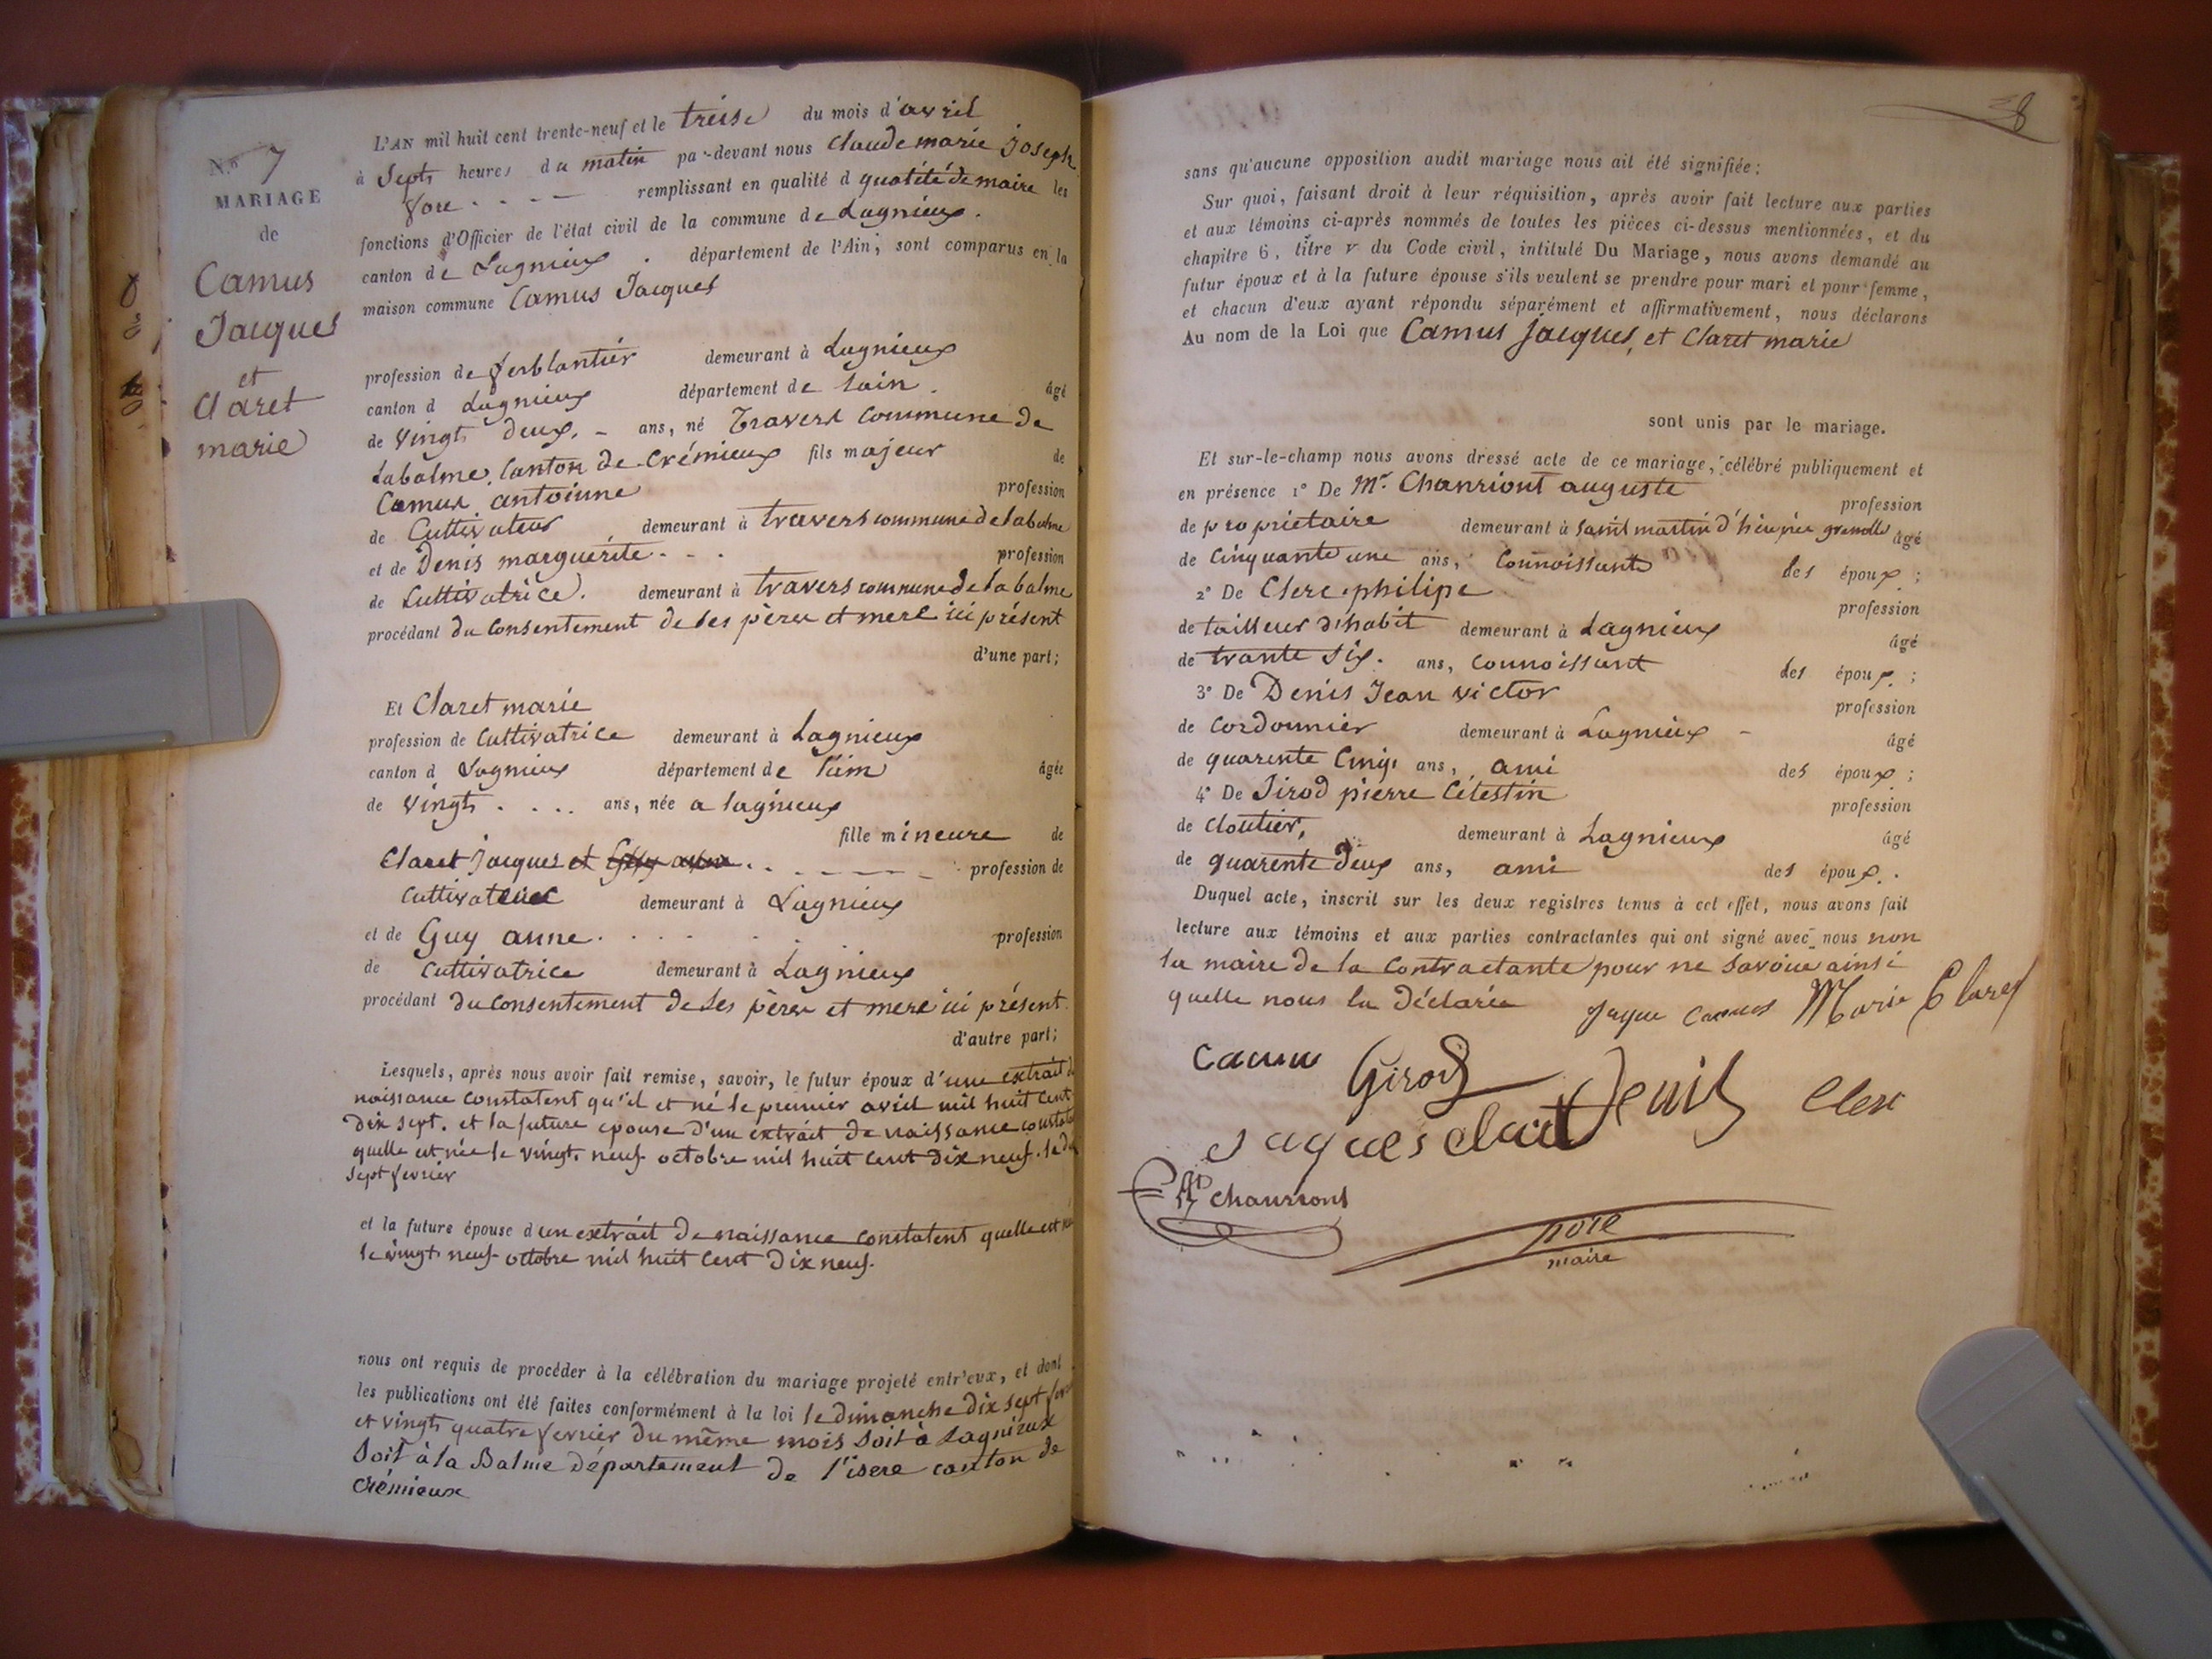 N.º 7
MARIAGE
de
Camus
Jacques
et
Claret
marie
L'AN mil huit cent trente-neuf et le treise du mois d'avril
à Sept heures du matin par-devant nous Claude marie joseph
remplissant en qualité d quatité de maire les
fonctions d'Officier de l'état civil de la commune de Lagnieux.
canton de Lagnieux . département de l'Ain; sont comparus en la
maison commune Camus Jacques
profession de ferblantier demeurant à Lagnieux
canton d Lagnieux département de lain . âgé
de vingt deux. - ans, né Travers commune de
Labalme, Canton de Crémieux fils majeur de
Camus antoinne profession
de Cultivateur demeurant à travers commune de labalme
et de Denis marguérite . . . profession
de Cultivatrice. demeurant à travers commune de la balme
procédant du Consentement de ses père et mere ici présent
d'une part;
Et Claret marie
profession de Cultivatrice demeurant à Lagnieux
canton d Lagnieux département de l'ain âgée
de vingt . . .. ans, née a lagnieux
fille mineure de
Claret jacques et profession de
Cultivateur demeurant à Lagnieux
et de Guy anne . . . . . profession
de Cultivatrice demeurant à Lagnieux
procédant du Consentement de ses père et mere ici présent.
d'autre part;
Lesquels, après nous avoir fait remise, savoir, le futur époux d'une extrait de
naissance constatent qu'il et né le premier avril mil huit cent
dix sept. et la future epouse d'un extrait de naissance
quelle est née le vingt neuf octobre mil huit cent dix neuf. le
sept fevrier
et la future épouse d un extrait de naissance constatent quelle est née
le vingt neuf octobre mil huit cent dix neuf.
nous ont requis de procéder à la célébration du mariage projeté entr'eux, et dont
les publications ont été faites conformément à la loi le dimanche dix sept
et vingt quatre fevrier du même mois soit à Lagnieux
soit à la Balme département de l'isere canton de
crémieux
38
sans qu'aucune opposition audit mariage nous ait été signifiée:
Sur quoi, faisant droit à leur réquisition, après avoir fait lecture aux parties
et aux témoins ci-après nommés de toutes les pièces ci-dessus mentionnées, et du
chapitre 6, titre v du Code civil, intitulé Du Mariage, nous avons demandé au
futur époux et à la future épouse s'ils veulent se prendre pour mari et pour femme,
et chacun d'eux ayant répondu séparément et affirmativement, nous déclarons
Au nom de la Loi que Camus jacques, et Claret marie
sont unis par le mariage.
Et sur-le-champ nous avons dressé acte de ce mariage, célébré publiquement et
en présence 1º De Mr. Chanriont auguste profession
de propriétaire demeurant à saint martin d' grenoble âgé
de Cinquante une ans, Connoissant des époux ;
2º De Clerc philipe profession
de tailleur d'habit demeurant à Lagnieux âgé
de trante six. ans, Connoissant des époux. ;
3º De Denis Jean victor profession
de cordonnier demeurant à Lagnieux - âgé
de quarente Cinq. ans, ami des époux ;
4º De Jirod pierre Célestin profession
de cloutier, demeurant à Lagnieux âgé
de quarente deux ans, ami des époux. .
Duquel acte, inscrit sur les deux registres tenus à cet effet, nous avons fait
lecture aux témoins et aux parties contractantes qui ont signé avec nous non
la maire de la Contractante pour ne savoir ainsi
quelle nous la déclarée Jaque camus Marie Claret
Camu Girod Denis Clerc
Jaques claret
maire